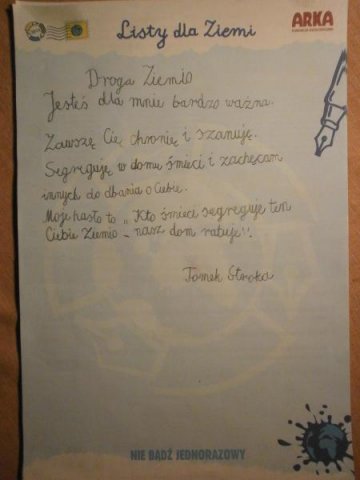 Listy dla Ziemi
ARKA
Droga Ziemio
Jesteś dla mnie bardzo ważna.
Zawszę Cię chronię i szanuję.
Segreguję w domu śmieci i zachęcam
innych do dbania o Ciebie.
Moje hasło to „Kto śmieci segreguje ten
Ciebie Ziemio - nasz dom ratuje".
Tomek Stroka
NIE BĄDŹ JEDNORAZOWY